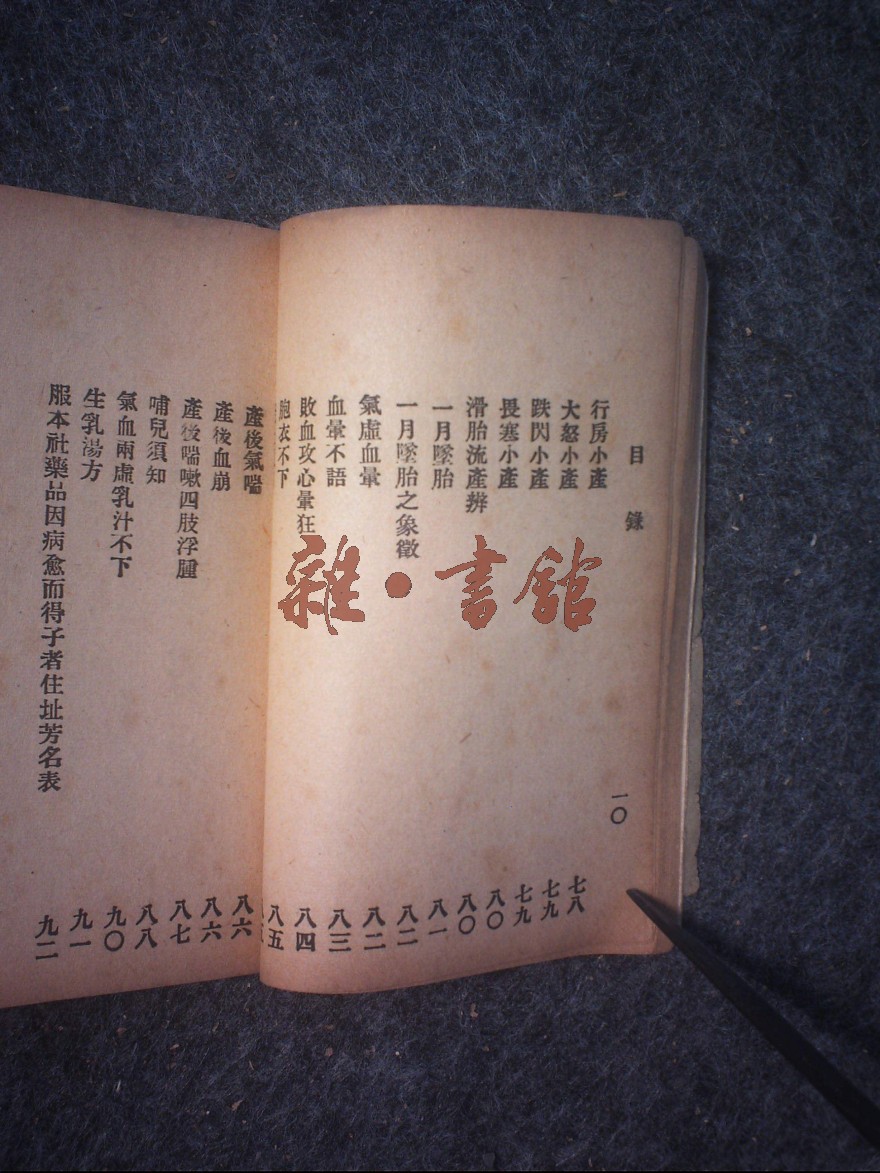 目錄
一〇
行房小產 七八
大怒小產 七九
跌閃小產 七九
畏寒小產 八〇
滑胎流產辨 八〇
一月墜胎 八一
一月墜胎之象徵 八二
氣虛血暈 八二
血暈不語 八三
敗血攻心暈狂 八四
胞衣不下 八五
產後氣喘 八六
產後血崩 八六
產後喘嗽四肢浮腫 八七
哺兒須知 八八
氣血兩虛乳汁不下 九〇
生乳湯方 九一
服本社藥品因病愈而得子者住址芳名表 九二
雜·書館